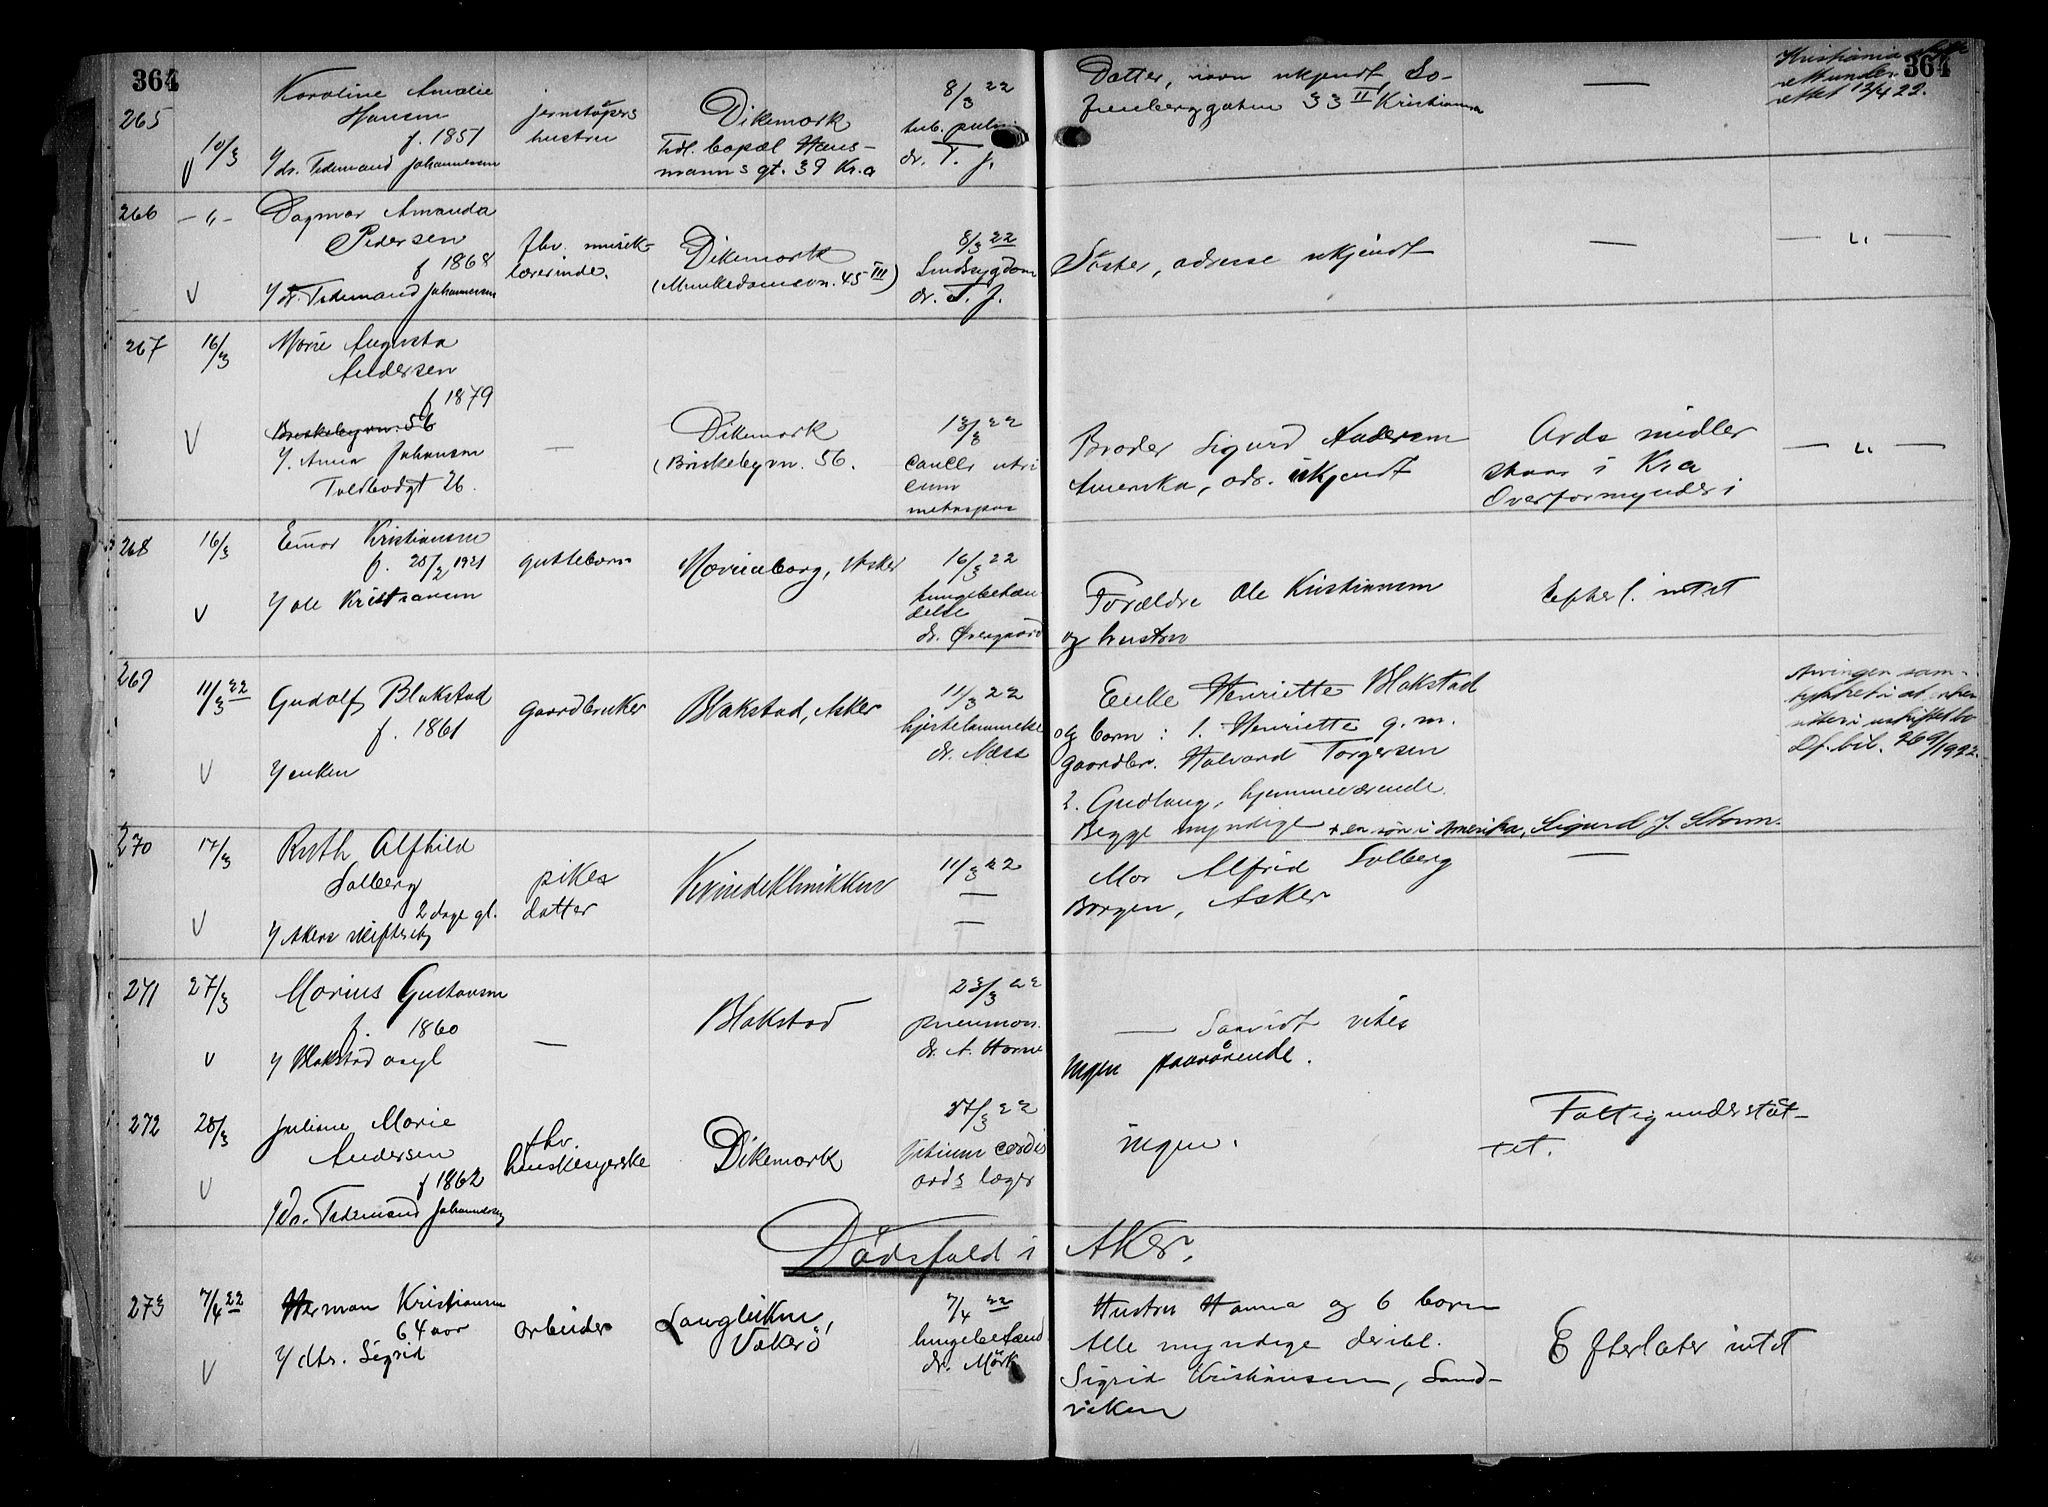 364
364
265
10/3
V
Karoline Amalie
Hansen
f. 1851
v/ dr. Tidemand Johannessen
jernstøpers
hustru
Dikemark
Tidl. bopæl Haus-
manns gt. 39 Kr.a
8/3 22
tub. pulm
dr. T. J.
Datter, navn ukjendt, So-
fienberggaten 33 II Kristiania
—
Kristiania
underrettet 12/4 22.
266
— " —
V
Dagmar Amanda
Pedersen
f 1868
v/ dr. Tidemand Johannessen
fhv. musik-
lærerinde.
Dikemark
(Munkedamsvn. 45 III)
8/3 22
Sindssygdom
dr. T. J.
Søster, adresse ukjendt
—
— " —
267
16/3
V
Marie Augusta
Andersen
f 1879
Briskebyvn. 56
v/ Anna Johansen
Toldbodgt 26.
—
Dikemark
(Briskebyvn. 56.
13/3 22
cancer uteri
cum
metaspas
Broder Sigurd Andersen
Amerika, adr. ukjendt
Avdø midler
staar i Kra
Overformynderi
— " —
268
16/3
V
Einar Kristiansen
f. 25/2 1921
v/ Ole Kristiansen
guttebarn
Marienborg, Asker
16/3 22
lungebetæn-
delse
dr. Øvergaard
Forældre Ole Kristiansen
og hustru
Efterl. intet
269
11/3 22
V
Gudolf Blakstad
f. 1861
v/ enken
gaardbruker
Blakstad, Asker
11/3 22
hjertelammelse
dr. Næss
Enke Henriette Blakstad
og barn: 1. Henriette g. m.
gaardbr. Halvard Torgersen
2. Gudlaug, hjemmeværende.
Begge myndige + en søn i Amerika, Sigurd J. Storm.
Arvingen sam-
tykket i at enken
sitter i uskiftet bo
Df. bil. 269/1922.
270
17/3
V
Ruth Alfhild
Solberg
2 dage gl.
v/ Akers skifteret
pikes
datter
Kvindeklinikken
11/3 22
—
—
Mor Alfrid Solberg
Borgen, Asker
—
271
27/3
V
Marius Gustavsen
f. 1860
v/ Blakstad asyl
—
Blakstad
23/3 22
pneumon.
dr. A. Horne
— Saavidt vites
ingen paarørende.
272
28/3
V
Juliane Marie
Andersen
f 1862
v/ Dr. Tidemand Johannessen
fhv.
hanskesyerske
Dikemark
27/3 22
Vitium cordis
avds læger
Ingen.
Fattigunderstøt-
tet.
Dødsfald i Aker.
273
7/4 22
V
Herman Kristiansen
64 aar
v/ dtr. Sigrid
arbeider
Langviken,
Vækerø
7/4 22
lungebetænd
dr. Mørk
Hustru Hanna og 6 barn
Alle myndige deribl.
Sigrid Kristiansen, Sand-
viken
Efterlater intet